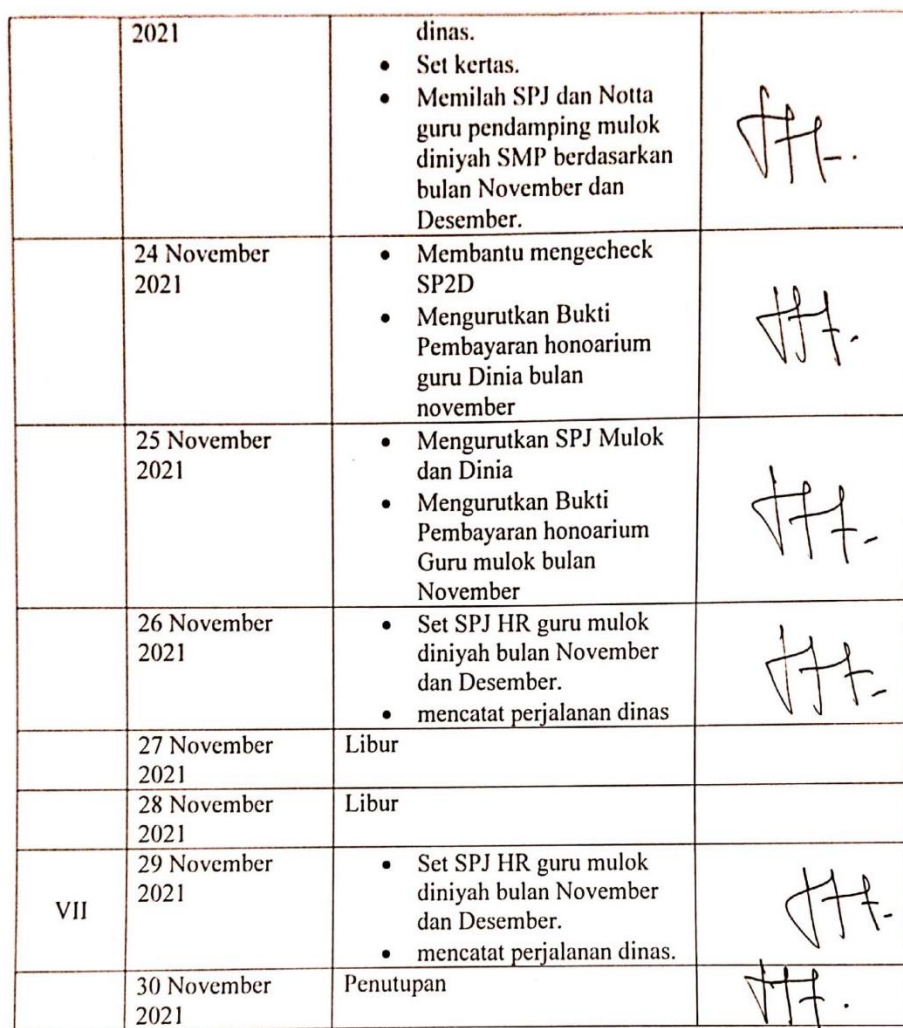 2021
dinas.
Set kertas.
Memilah SPJ dan Notta
guru pendamping mulok
diniyah SMP berdasarkan
bulan November dan
Desember.
24 November
2021
Membantu mengecheck
SP2D
Mengurutkan Bukti
Pembayaran honoarium
guru Dinia bulan
november
25 November
2021
Mengurutkan SPJ Mulok
dan Dinia
Mengurutkan Bukti
Pembayaran honoarium
Guru mulok bulan
November
26 November
2021
Set SPJ HR guru mulok
diniyah bulan November
dan Desember.
mencatat perjalanan dinas
27 November
2021
Libur
28 November
2021
Libur
VII
29 November
2021
Set SPJ HR guru mulok
diniyah bulan November
dan Desember.
mencatat perjalanan dinas.
30 November
2021
Penutupan